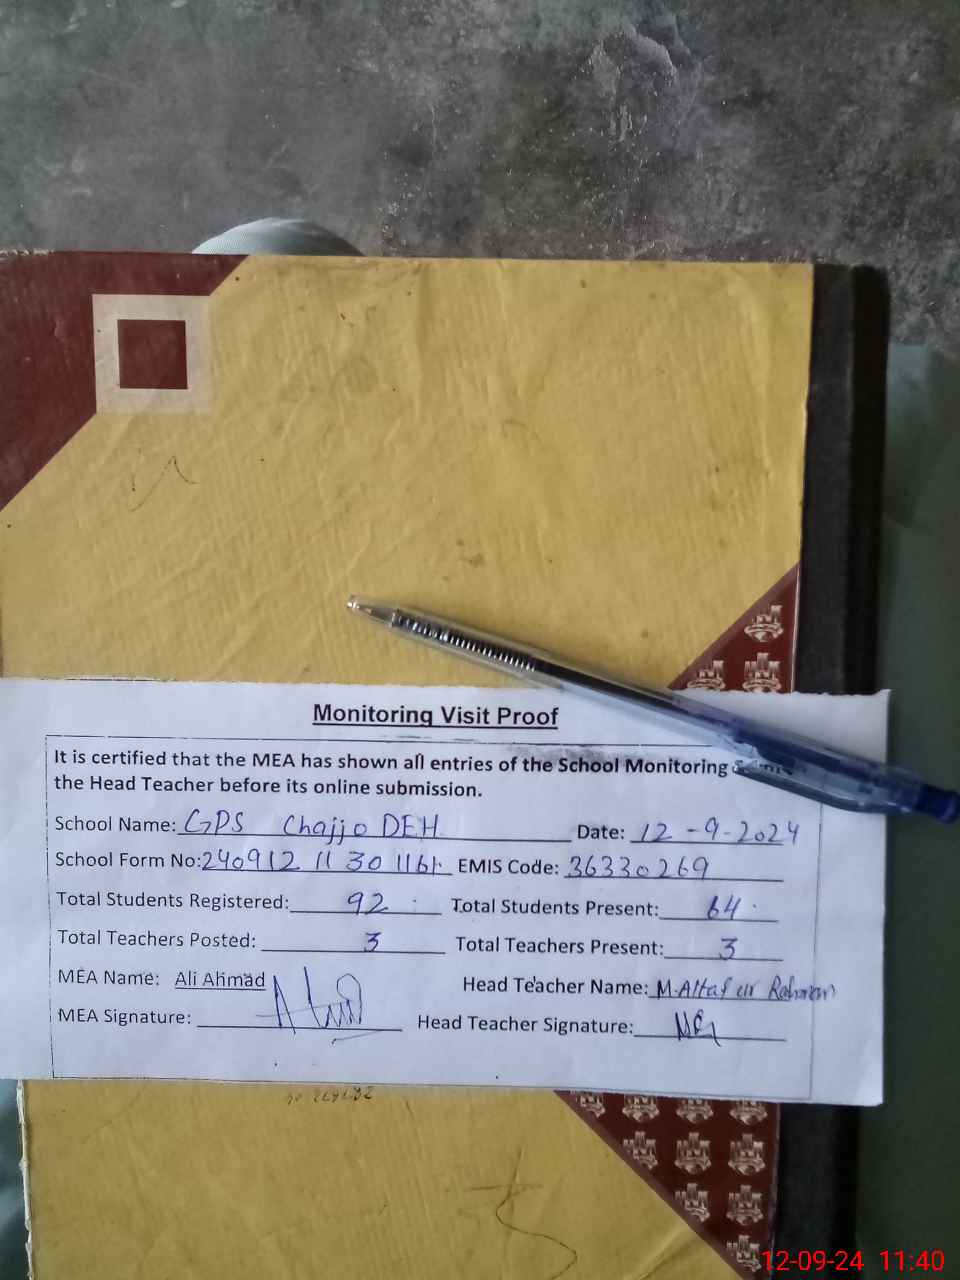 Monitoring Visit Proof
It is certified that the MEA has shown all entries of the School Monitoring
the Head Teacher before its online submission.
School Name: GPS Chajjo DEH Date: 12-9-2024
School Form No: EMIS Code: 36330269
Total Students Registered: 92 Total Students Present: 64
Total Teachers Posted: 3 Total Teachers Present: 3
MEA Name: Ali Ahmad Head Teacher Name: M.Altaf ur Rahman
MEA Signature: Head Teacher Signature:
12-09-24 11:40